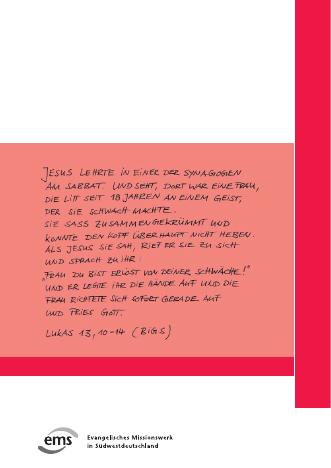 JESUS LEHRTE IN EINER DER SYNAGOGEN
AM SABBAT. UND SEHT, DORT WAR EINE FRAU,
DIE LITT SEIT 18 JAHREN AN EINEM GEIST,
DER SIE SCHWACH MACHTE.
SIE SASS ZUSAMMENGEKRÜMMT UND
KONNTE DEN KOPF ÜBERHAUPT NICHT HEBEN.
ALS JESUS SIE SAH, RIEF ER SIE ZU SICH
UND SPRACH ZU IHR:
„FRAU DU BIST ERLÖST VON DEINER SCHWÄCHE!"
UND ER LEGTE IHR DIE HÄNDE AUF UND DIE
FRAU RICHTETE SICH SOFORT GERADE AUF
UND PRIES GOTT.
LUKAS 13, 10-14 (BIGS)
ems
Evangelisches Missionswerk
in Südwestdeutschland